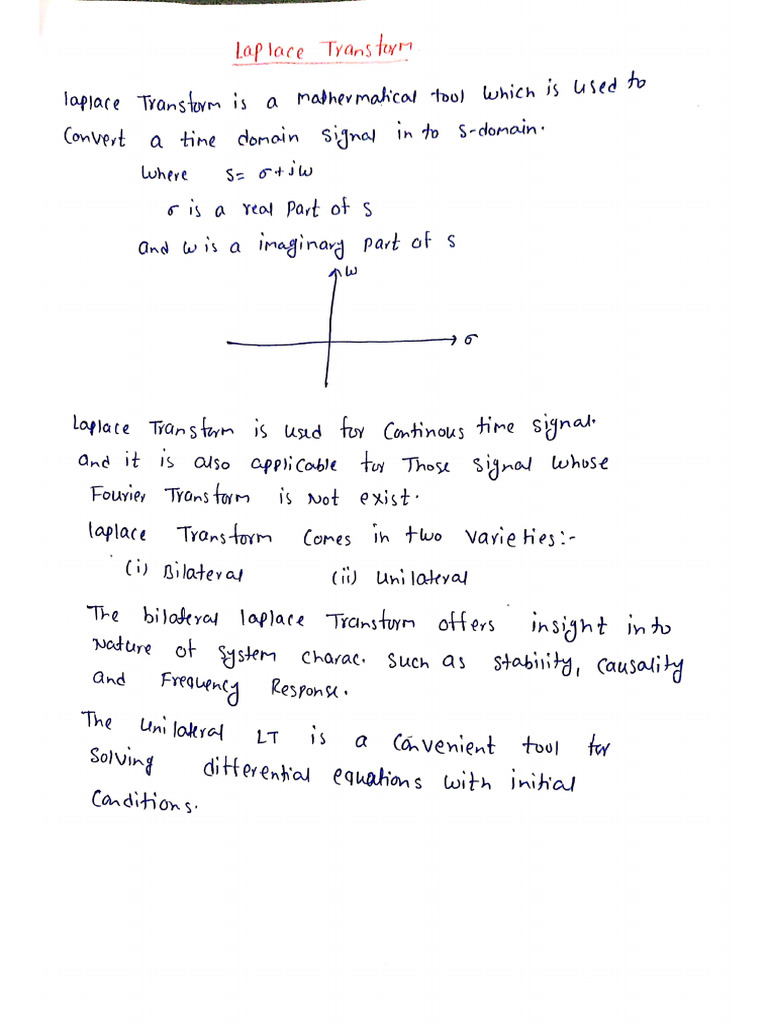 Laplace Transform
laplace Transform is a mathermatical tool which is used to
Convert a time domain signal in to s-domain.
where s= σ+jω
σ is a real part of s
and ω is a imaginary part of s
ω
σ
Laplace Transform is used for Continous time signal.
and it is also applicable for Those signal whose
Fourier Transform is Not exist.
laplace Transform Comes in two varieties:-
(i) Bilateral (ii) Unilateral
The bilateral laplace Transform offers insight into
Nature of system charac. such as stability, causality
and Frequency Response.
The Unilateral LT is a Convenient tool for
Solving differential equations with initial
Conditions.